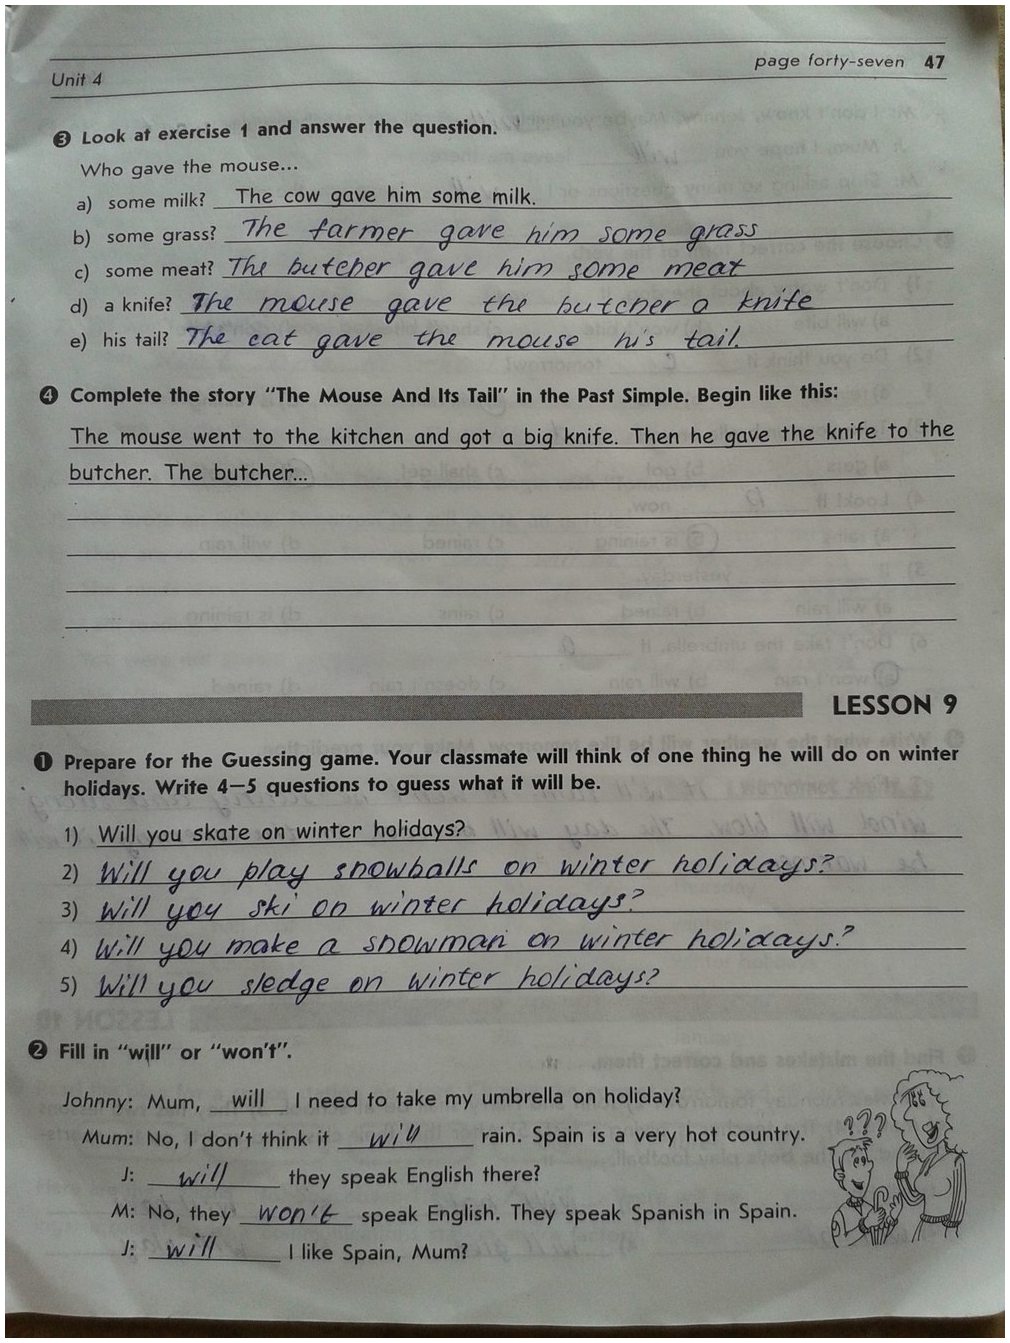 Unit 4
page forty-seven 47
3 Look at exercise 1 and answer the question.
Who gave the mouse...
a) some milk? The cow gave him some milk.
b) some grass? The farmer gave him some grass
c) some meat? The butcher gave him some meat
d) a knife? The mouse gave the butcher a knife
e) his tail? The cat gave the mouse his tail.
4 Complete the story "The Mouse And Its Tail" in the Past Simple. Begin like this:
The mouse went to the kitchen and got a big knife. Then he gave the knife to the
butcher. The butcher...
LESSON 9
1 Prepare for the Guessing game. Your classmate will think of one thing he will do on winter
holidays. Write 4–5 questions to guess what it will be.
1) Will you skate on winter holidays?
2) Will you play snowballs on winter holidays?
3) Will you ski on winter holidays?
4) Will you make a snowman on winter holidays?
5) Will you sledge on winter holidays?
2 Fill in "will" or "won't".
Johnny: Mum, will I need to take my umbrella on holiday?
Mum: No, I don't think it will rain. Spain is a very hot country.
J: will they speak English there?
M: No, they won't speak English. They speak Spanish in Spain.
J: will I like Spain, Mum?
???